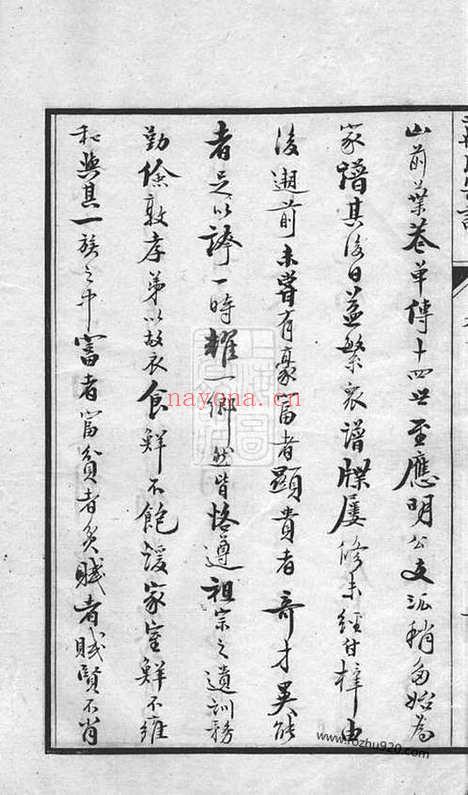 山前叶巷单傳十四世至應明公支派稍多始為
家譜其後日益繁衆譜牒屢修未經付梓由
後遡前未嘗有豪富者顯貴者奇才異能
者足以誇一時耀一鄉然皆恪遵祖宗之遺訓務
勤儉敦孝弟以故衣食鮮不飽煖家室鮮不雍
和與其一族之中富者富貧者貧賤者賤賢不肖
nayona.cn
www.fozhu920.com